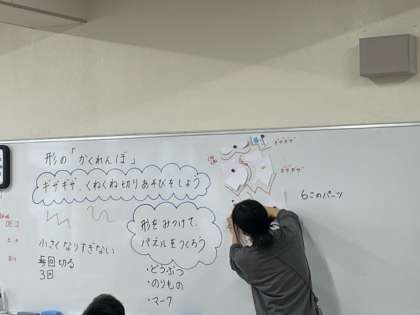 形の「かくれんぼ」
ギザギザ、くねくね切りあそびをしよう
形をみつけて、
パズルをつくろう
小さくなりすぎない
毎回切る
3回
・どうぶつ
・のりもの
・マーク
ギザギザ
ギザギザ
6このパーツ